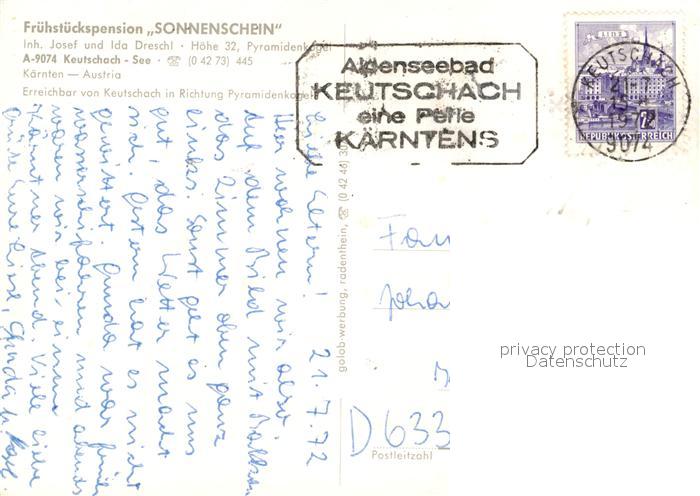 Frühstückspension „SONNENSCHEIN"
Inh. Josef und Ida Dreschl · Höhe 32, Pyramidenkogel
A-9074 Keutschach - See · ☏ (0 42 73) 445
Kärnten — Austria
Erreichbar von Keutschach in Richtung Pyramidenkogel
Alpenseebad
KEUTSCHACH
eine Perle
KÄRNTENS
LINZ
REPUBLIK ÖSTERREICH
KEUTSCHACH
21.
1972
9074
21.7.72
Liebe Eltern!
Hier wohnen wir also.
Auf dem Bild mit Balkon
das Zimmer oben ganz
links. Sonst geht es uns
gut, das Wetter macht
sich. Gestern hat es nicht
geregnet. Gunda war
Wasserschifahren und abends
waren wir bei einem
Kärntner Abend. Viele liebe
Grüße Eure Liesl, Gunda u.
golob-werbung, radenthein, ☏ (0 42 46)
Fam
Joha
D 633
Postleitzahl
privacy protection
Datenschutz